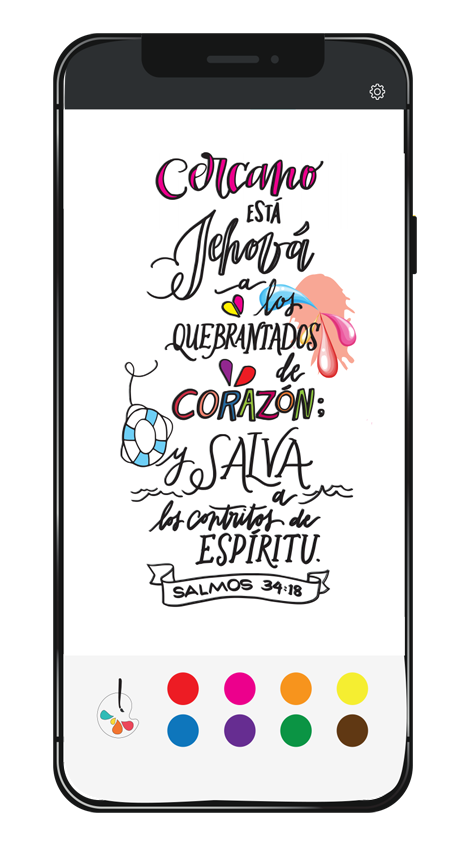 Cercano
ESTÁ
Jehová
a los
QUEBRANTADOS
de
CORAZÓN;
y SALVA
a
los contritos de
ESPÍRITU.
SALMOS 34:18